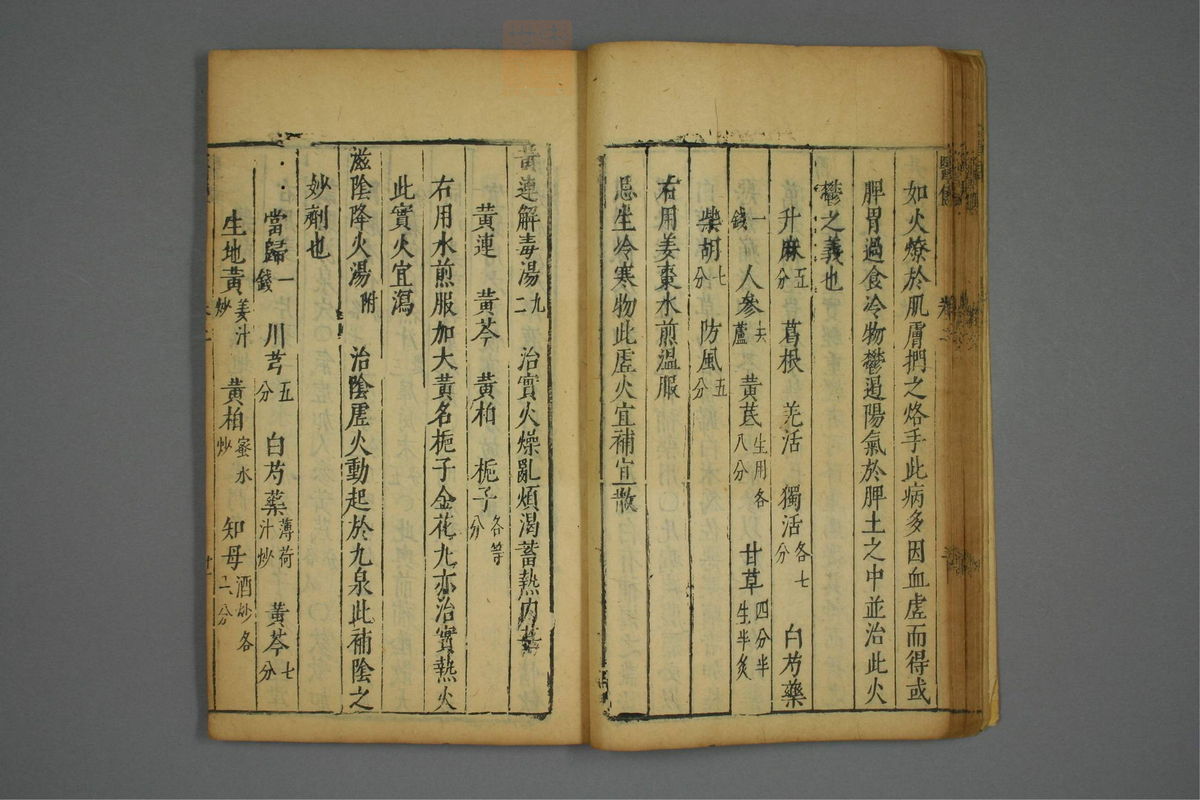 如火燎於肌膚捫之烙手此病多因血虛而得或
脾胃過食冷物鬱遏陽氣於脾土之中並治此火
鬱之義也
升麻五 葛根 羌活 獨活各七分 白芍藥
一錢 人參去蘆 黃芪生用各八分 甘草四分半生半炙
柴胡七分 防風五分
右用姜棗水煎溫服
忌生冷寒物此虛火宜補宜散
黃連解毒湯九二 治實火燥亂煩渴蓄熱內甚
黃連 黃芩 黃柏 梔子各等分
右用水煎服加大黃名梔子金花丸亦治實熱火
此實火宜瀉
滋陰降火湯附 治陰虛火動起於九泉此補陰之
妙劑也
當歸一錢 川芎五分 白芍藥薄荷汁炒 黃芩七分
生地黃姜汁炒 黃柏蜜水炒 知母酒炒各六分